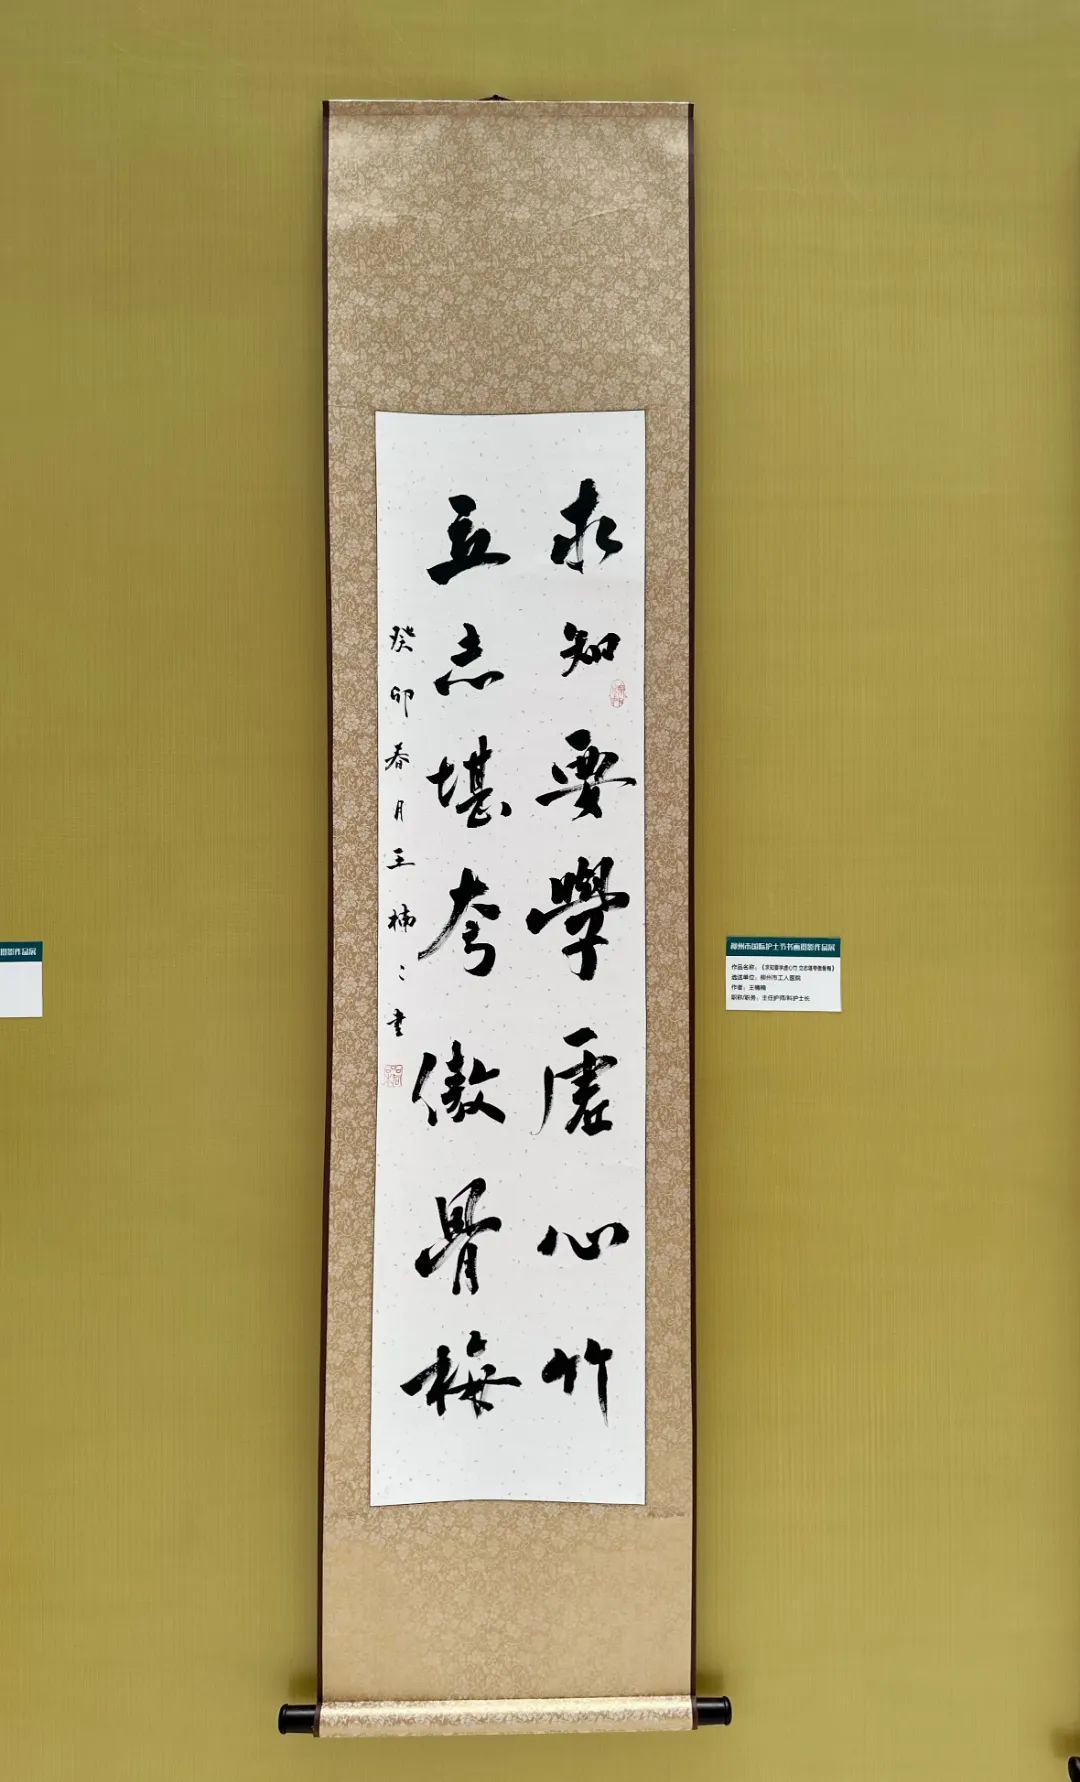 求知要學虛心竹
立志堪夸傲骨梅
癸卯春月王楠〻書
柳州市国际护士节书画摄影作品展
作品名称:《求知要学虚心竹 立志堪夸傲骨梅》
选送单位:柳州市工人医院
作者:王楠楠
职称/职务:主任护师/科护士长
摄影作品展